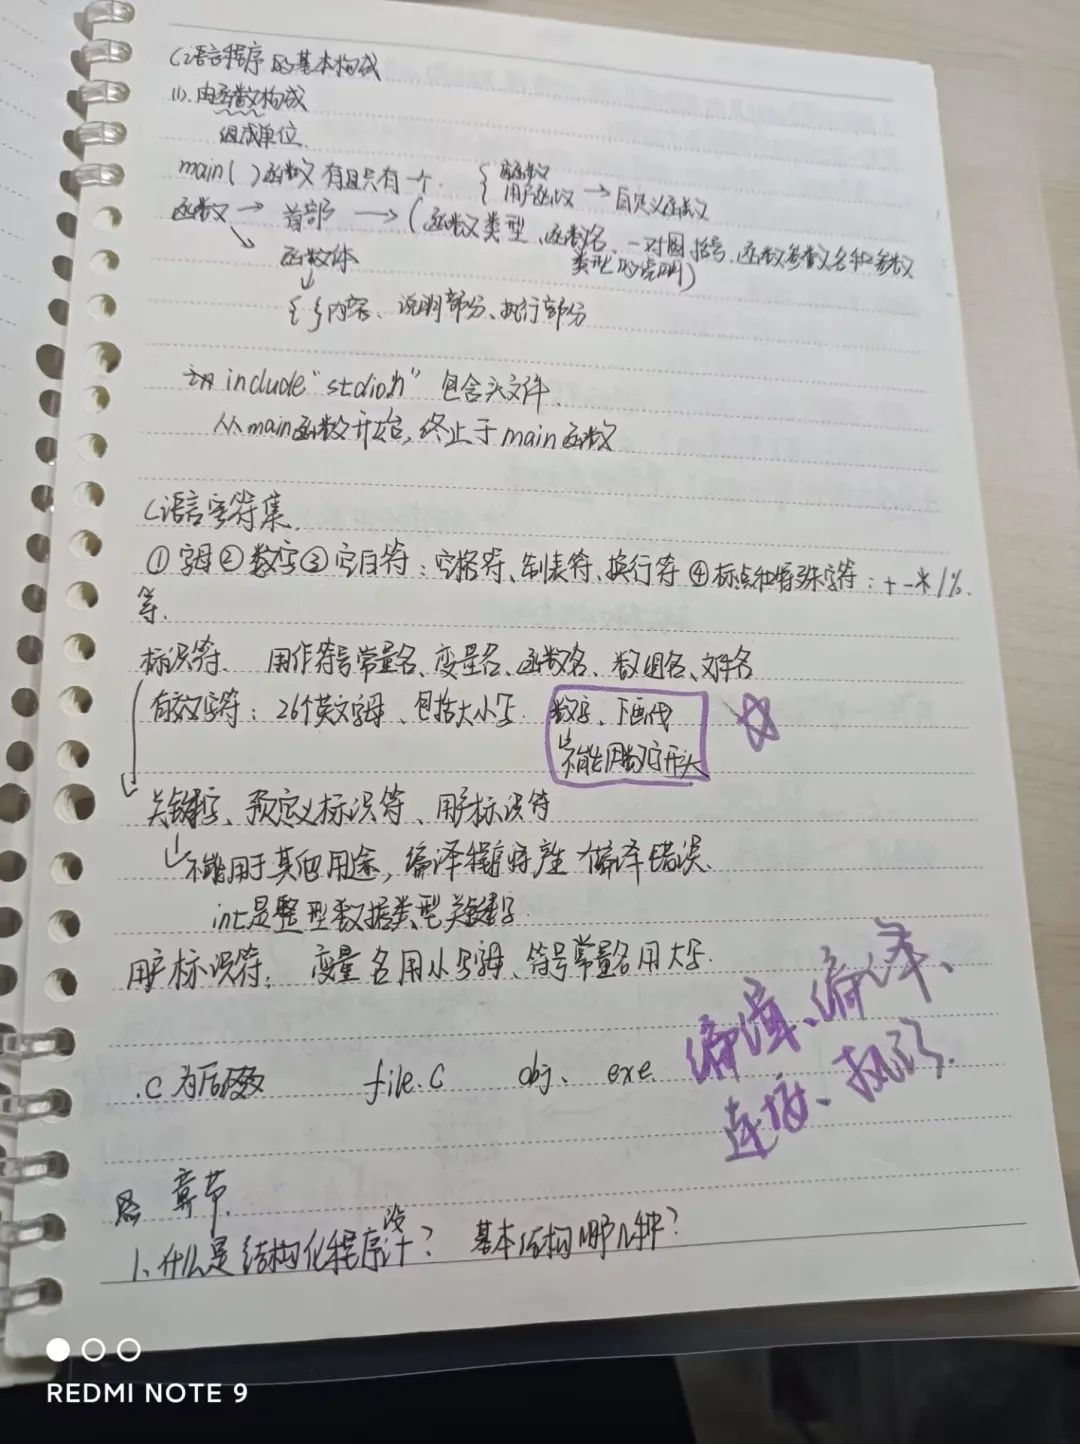 C语言程序的基本构成
(1).由函数构成
组成单位
main( )函数有且只有一个. { 库函数
用户函数 → 自定义函数
函数 → 首部 → (函数类型、函数名、一对圆括号、函数参数名和参数
类型的说明)
函数体
{ }内容、说明部分、执行部分
include "stdio.h" 包含头文件.
从main函数开始,终止于main函数
C语言字符集.
①字母②数字③空白符:空格符、制表符、换行符④标点和特殊字符:+-*/%.
等.
标识符、 用作符号常量名、变量名、函数名、数组名、文件名
有效字符:26个英文字母、包括大小写. 数字、下画线
不能用数字开头
关键字、预定义标识符、用户标识符
不能用于其他用途,编译程序将产生 编译错误.
int是整型数据类型关键字.
用户标识符: 变量名用小写字母、符号常量名用大写.
编、编译、
.C为后缀 file.C obj、 exe.
连接、执行.
章节.
1、什么是结构化程序设计? 基本结构哪几种?
REDMI NOTE 9